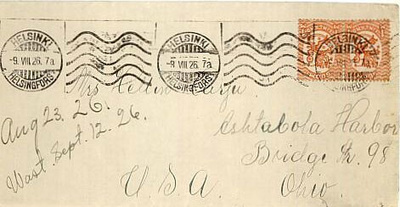 HELSINKI
-9. VIII. 26. 7a.
HELSINGFORS
HELSINKI
-9. VIII. 26. 7a.
HELSINGFORS
Mrs
Ashtabola Harbor
Bridge Str. 98
Ohio.
U. S. A.
Aug 23. 26.
Wast. Sept. 12. 26.